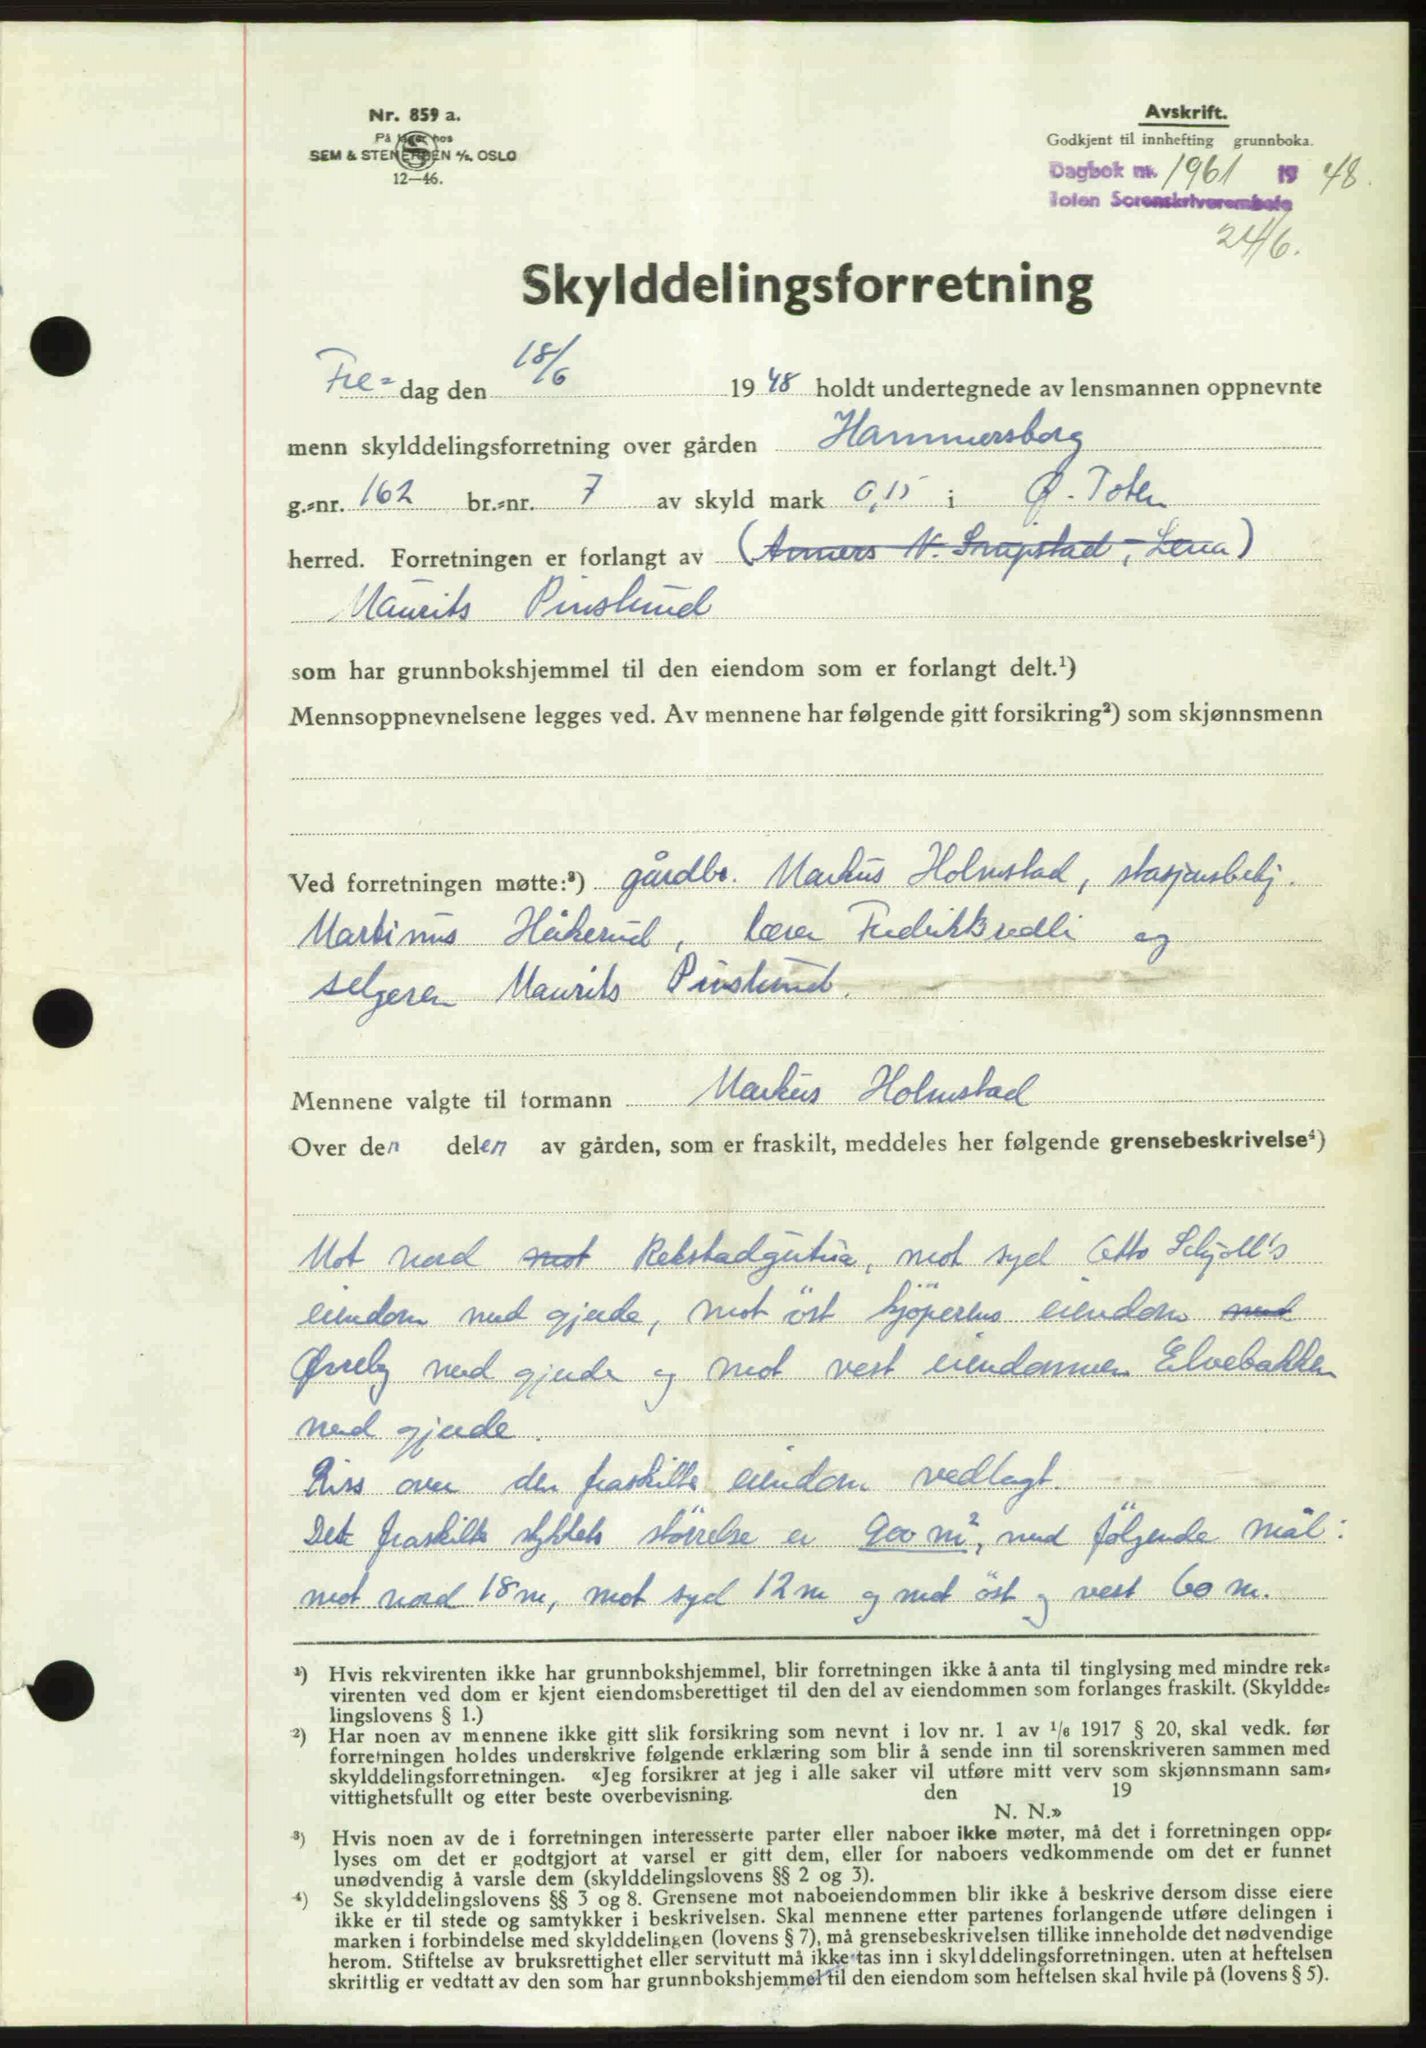 Nr. 859 a.
På lager hos
SEM & STENERSEN A/S, OSLO
12—46.
Avskrift.
Godkjent til innhefting grunnboka.
Dagbok nr. 1961 19 48.
Toten Sorenskriverembete
24/6.
Skylddelingsforretning
Fre= dag den 18/6 1948 holdt undertegnede av lensmannen oppnevnte
menn skylddelingsforretning over gården Hammersborg
g.=nr. 162 br.=nr. 7 av skyld mark 0,15 i Ø. Toten
herred. Forretningen er forlangt av ( N. , Lena)
Maurits Pinslund
som har grunnbokshjemmel til den eiendom som er forlangt delt.¹)
Mennsoppnevnelsene legges ved. Av mennene har følgende gitt forsikring²) som skjønnsmenn
Ved forretningen møtte:³) gårdbr. Markus Holmstad, stasjonsbetj.
Martinus Håkerud, lærer Fredrik Bredli og
selgeren Maurits Pinslund.
Mennene valgte til formann Markus Holmstad
Over den delen av gården, som er fraskilt, meddeles her følgende grensebeskrivelse⁴)
Mot nord mot Rekstadgutua, mot syd Otto Schjoll's
eiendom med gjerde, mot öst kjöperens eiendom med
Øvreby med gjerde og mot vest eiendommen Elvebakken
med gjerde.
Riss over den fraskilte eiendom vedlagt.
Det fraskilte stykkets störrelse er 900 m², med följende mål:
mot nord 18 m, mot syd 12 m og mot öst og vest 60 m.
¹) Hvis rekvirenten ikke har grunnbokshjemmel, blir forretningen ikke å anta til tinglysing med mindre rek=
virenten ved dom er kjent eiendomsberettiget til den del av eiendommen som forlanges fraskilt. (Skyldde=
lingslovens § 1.)
²) Har noen av mennene ikke gitt slik forsikring som nevnt i lov nr. 1 av 1/6 1917 § 20, skal vedk. før
forretningen holdes underskrive følgende erklæring som blir å sende inn til sorenskriveren sammen med
skylddelingsforretningen. «Jeg forsikrer at jeg i alle saker vil utføre mitt verv som skjønnsmann sam=
vittighetsfullt og etter beste overbevisning. den 19
N. N.»
³) Hvis noen av de i forretningen interesserte parter eller naboer ikke møter, må det i forretningen opp=
lyses om det er godtgjort at varsel er gitt dem, eller for naboers vedkommende om det er funnet
unødvendig å varsle dem (skylddelingslovens §§ 2 og 3).
⁴) Se skylddelingslovens §§ 3 og 8. Grensene mot naboeiendommen blir ikke å beskrive dersom disse eiere
ikke er til stede og samtykker i beskrivelsen. Skal mennene etter partenes forlangende utføre delingen i
marken i forbindelse med skylddelingen (lovens § 7), må grensebeskrivelsen tillike inneholde det nødvendige
herom. Stiftelse av bruksrettighet eller servitutt må ikke tas inn i skylddelingsforretningen, uten at heftelsen
skriftlig er vedtatt av den som har grunnbokshjemmel til den eiendom som heftelsen skal hvile på (lovens § 5).